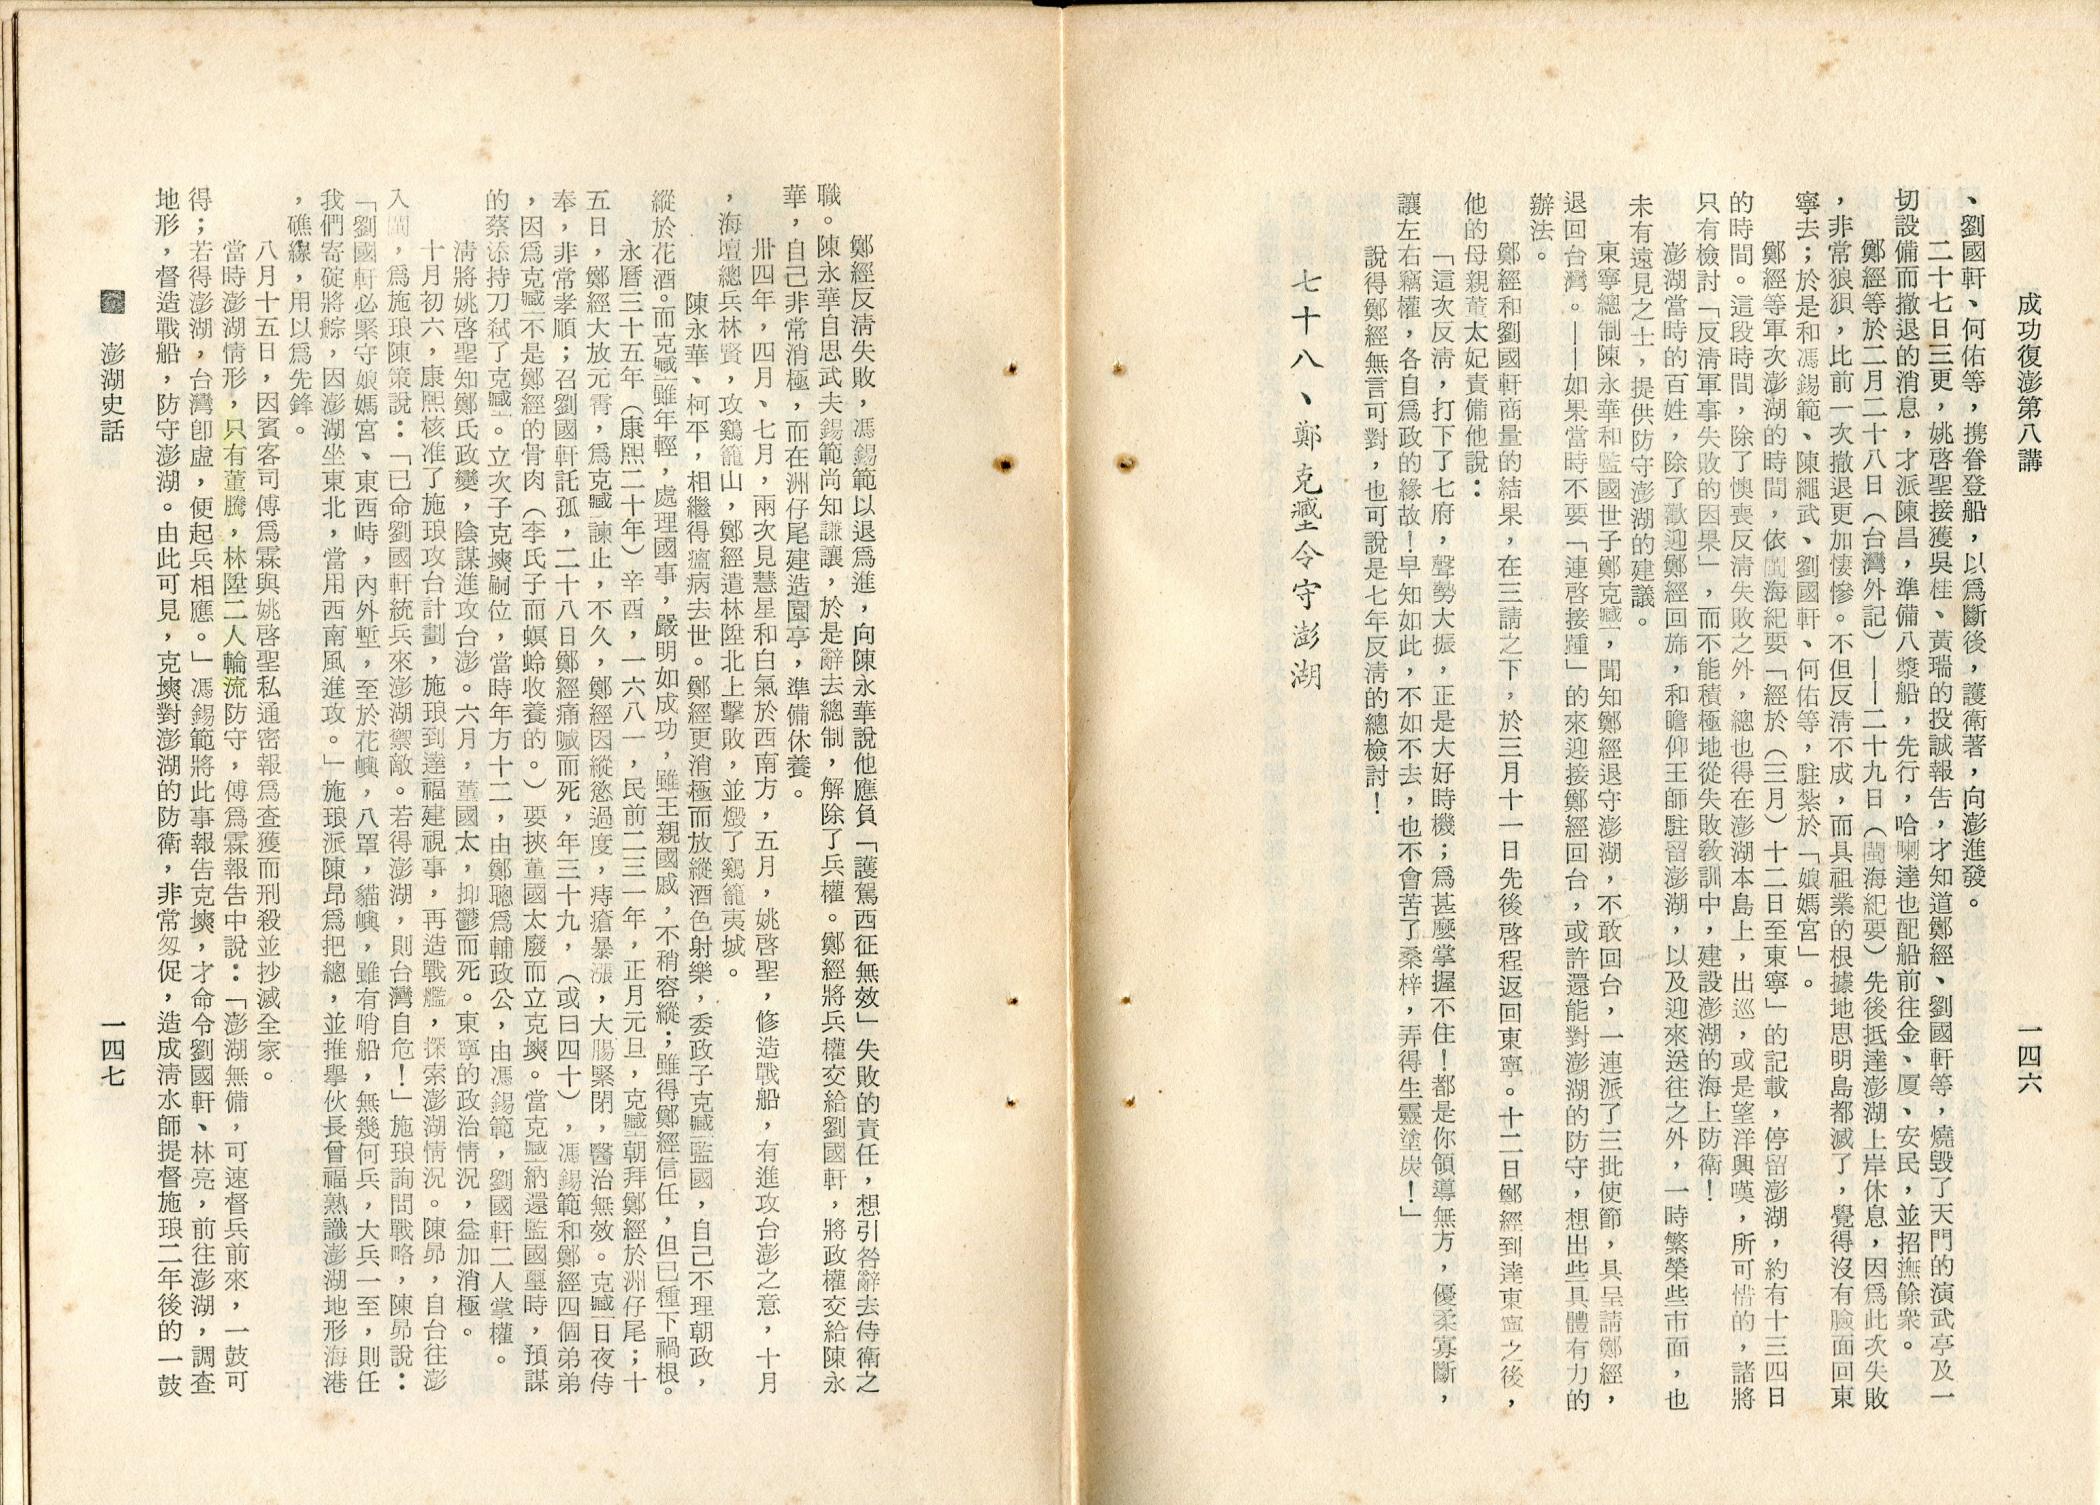 成功復澎第八講
一四六
、劉國軒、何佑等，携眷登船，以爲斷後，護衛著，向澎進發。
二十七日三更，姚啓聖接獲吳桂、黃瑞的投誠報告，才知道鄭經、劉國軒等，燒毀了天門的演武亭及一
切設備而撤退的消息，才派陳昌，準備八槳船，先行，哈喇達也配船前往金、厦、安民，並招撫餘衆。
鄭經等於二月二十八日（台灣外記）——二十九日（閩海紀要）先後抵達澎湖上岸休息，因爲此次失敗
，非常狼狽，比前一次撤退更加悽慘。不但反淸不成，而具祖業的根據地思明島都滅了，覺得沒有臉面回東
寧去；於是和馮錫範、陳繩武、劉國軒、何佑等，駐紮於「娘媽宮」。
鄭經等軍次澎湖的時間，依閩海紀要「經於（三月）十二日至東寧」的記載，停留澎湖，約有十三四日
的時間。這段時間，除了懊喪反淸失敗之外，總也得在澎湖本島上，出巡，或是望洋興嘆，所可惜的，諸將
只有檢討「反淸軍事失敗的因果」，而不能積極地從失敗教訓中，建設澎湖的海上防衛！
澎湖當時的百姓，除了歡迎鄭經回旆，和瞻仰王師駐留澎湖，以及迎來送往之外，一時繁榮些市面，也
未有遠見之士，提供防守澎湖的建議。
東寧總制陳永華和監國世子鄭克𡒉，聞知鄭經退守澎湖，不敢回台，一連派了三批使節，具呈請鄭經，
退回台灣。——如果當時不要「連啓接踵」的來迎接鄭經回台，或許還能對澎湖的防守，想出些具體有力的
辦法。
鄭經和劉國軒商量的結果，在三請之下，於三月十一日先後啓程返回東寧。十二日鄭經到達東寧之後，
他的母親董太妃責備他說：
「這次反淸，打下了七府，聲勢大振，正是大好時機；爲甚麼掌握不住！都是你領導無方，優柔寡斷，
讓左右竊權，各自爲政的緣故！早知如此，不如不去，也不會苦了桑梓，弄得生靈塗炭！」
說得鄭經無言可對，也可說是七年反淸的總檢討！
七十八、鄭克𡒉令守澎湖
鄭經反淸失敗，馮錫範以退爲進，向陳永華說他應負「護駕西征無效」失敗的責任，想引咎辭去侍衛之
職。陳永華自思武夫錫範尚知謙讓，於是辭去總制，解除了兵權。鄭經將兵權交給劉國軒，將政權交給陳永
華，自己非常消極，而在洲仔尾建造園亭，準備休養。
卅四年，四月、七月，兩次見慧星和白氣於西南方，五月，姚啓聖，修造戰船，有進攻台澎之意，十月
，海壇總兵林賢，攻鷄籠山，鄭經遣林陞北上擊敗，並燬了鷄籠夷城。
陳永華、柯平，相繼得瘟病去世。鄭經更消極而放縱酒色射樂，委政子克𡒉監國，自己不理朝政，
縱於花酒。而克𡒉雖年輕，處理國事，嚴明如成功，雖王親國戚，不稍容縱；雖得鄭經信任，但已種下禍根。
永曆三十五年（康熙二十年）辛酉，一六八一，民前二三一年，正月元旦，克𡒉朝拜鄭經於洲仔尾；十
五日，鄭經大放元霄，爲克𡒉諫止，不久，鄭經因縱慾過度，痔瘡暴漲，大腸緊閉，醫治無效。克𡒉日夜侍
奉，非常孝順；召劉國軒託孤，二十八日鄭經痛喊而死，年三十九，（或曰四十），馮錫範和鄭經四個弟弟
，因爲克𡒉不是鄭經的骨肉（李氏子而螟蛉收養的。）要挾董國太廢而立克塽。當克𡒉納還監國璽時，預謀
的蔡添持刀弒了克𡒉。立次子克塽嗣位，當時年方十二，由鄭聰爲輔政公，由馮錫範，劉國軒二人掌權。
淸將姚啓聖知鄭氏政變，陰謀進攻台澎。六月，董國太，抑鬱而死。東寧的政治情況，益加消極。
十月初六，康熙核准了施琅攻台計劃，施琅到達福建視事，再造戰艦，探索澎湖情況。陳昴，自台往澎
入閩，爲施琅陳策說：「已命劉國軒統兵來澎湖禦敵。若得澎湖，則台灣自危！」施琅詢問戰略，陳昴說：
「劉國軒必緊守娘媽宮、東西峙，內外塹，至於花嶼，八罩，貓嶼，雖有哨船，無幾何兵，大兵一至，則任
我們寄碇將鯮，因澎湖坐東北，當用西南風進攻。」施琅派陳昂爲把總，並推擧伙長曾福熟識澎湖地形海港
，礁線，用以爲先鋒。
八月十五日，因賓客司傅爲霖與姚啓聖私通密報爲查獲而刑殺並抄滅全家。
當時澎湖情形，只有董騰，林陞二人輪流防守，傅爲霖報告中說：「澎湖無備，可速督兵前來，一鼓可
得；若得澎湖，台灣卽虛，便起兵相應。」馮錫範將此事報告克塽，才命令劉國軒、林亮，前往澎湖，調查
地形，督造戰船，防守澎湖。由此可見，克塽對澎湖的防衛，非常匆促，造成淸水師提督施琅二年後的一鼓
澎湖史話
一四七